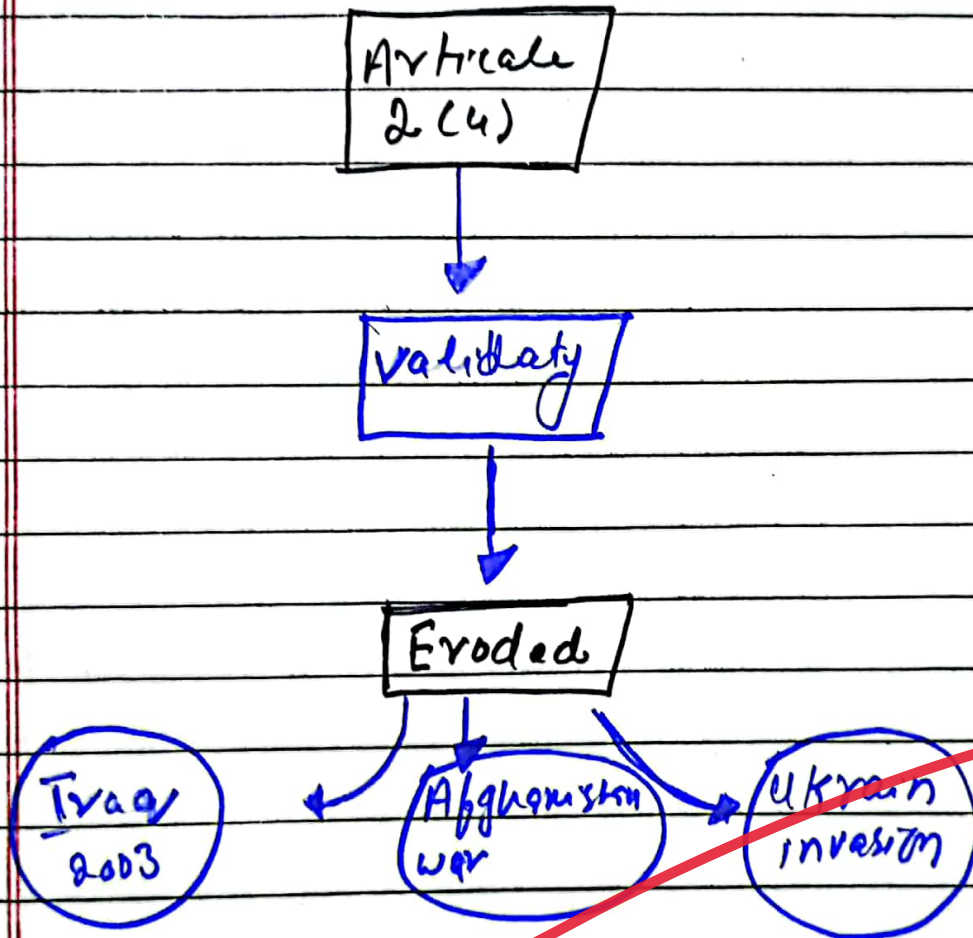 Articale
2 (4)
validaty
Eroded
Iraq
2003
Afghanistan
war
Ukrain
invasion